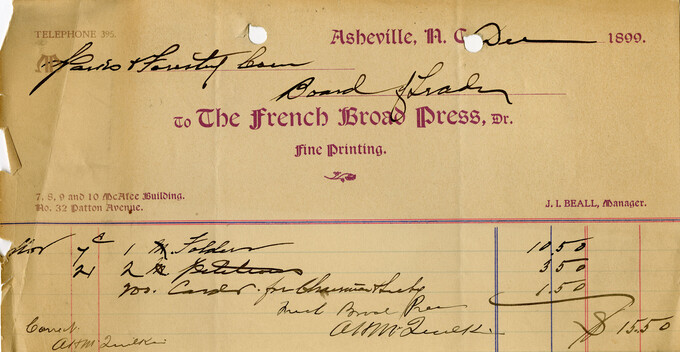 TELEPHONE 395.
Asheville, N. C. Dec 1899.
M Parks & Forestry Com
Board of Trade
To The French Broad Press, Dr.
Fine Printing.
7, 8, 9 and 10 McAfee Building.
No. 32 Patton Avenue.
J. I. BEALL, Manager.
Nov 7 1 M Folders 10.50
21 2 Petitions 3 50
Cards for Chairman & Secty 1.50
French Broad Press
$ 15.50
Correct